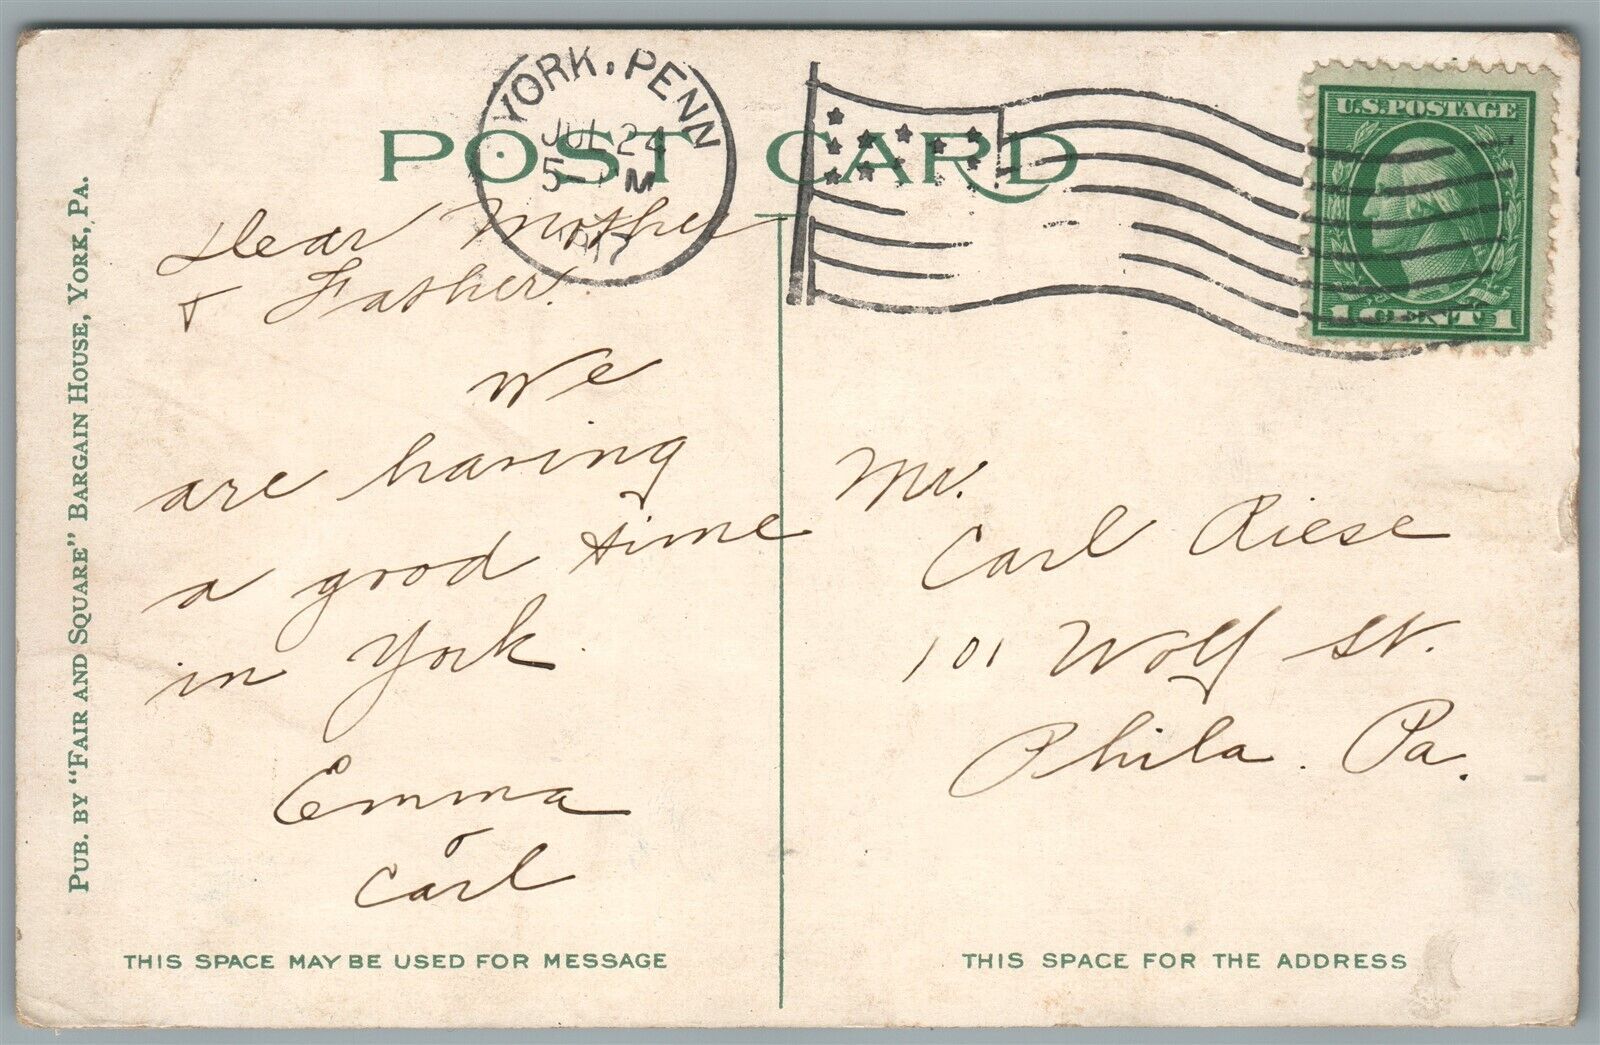 POST CARD
YORK, PENN
JUL 24
5- PM
1917
U.S. POSTAGE
1 CENT 1
PUB. BY "FAIR AND SQUARE" BARGAIN HOUSE, YORK, PA.
Dear Mother
+ Father.
We
are having
a good time
in York.
Emma
Carl
Mr.
Carl Riese
101 Wolf St.
Phila. Pa.
THIS SPACE MAY BE USED FOR MESSAGE
THIS SPACE FOR THE ADDRESS